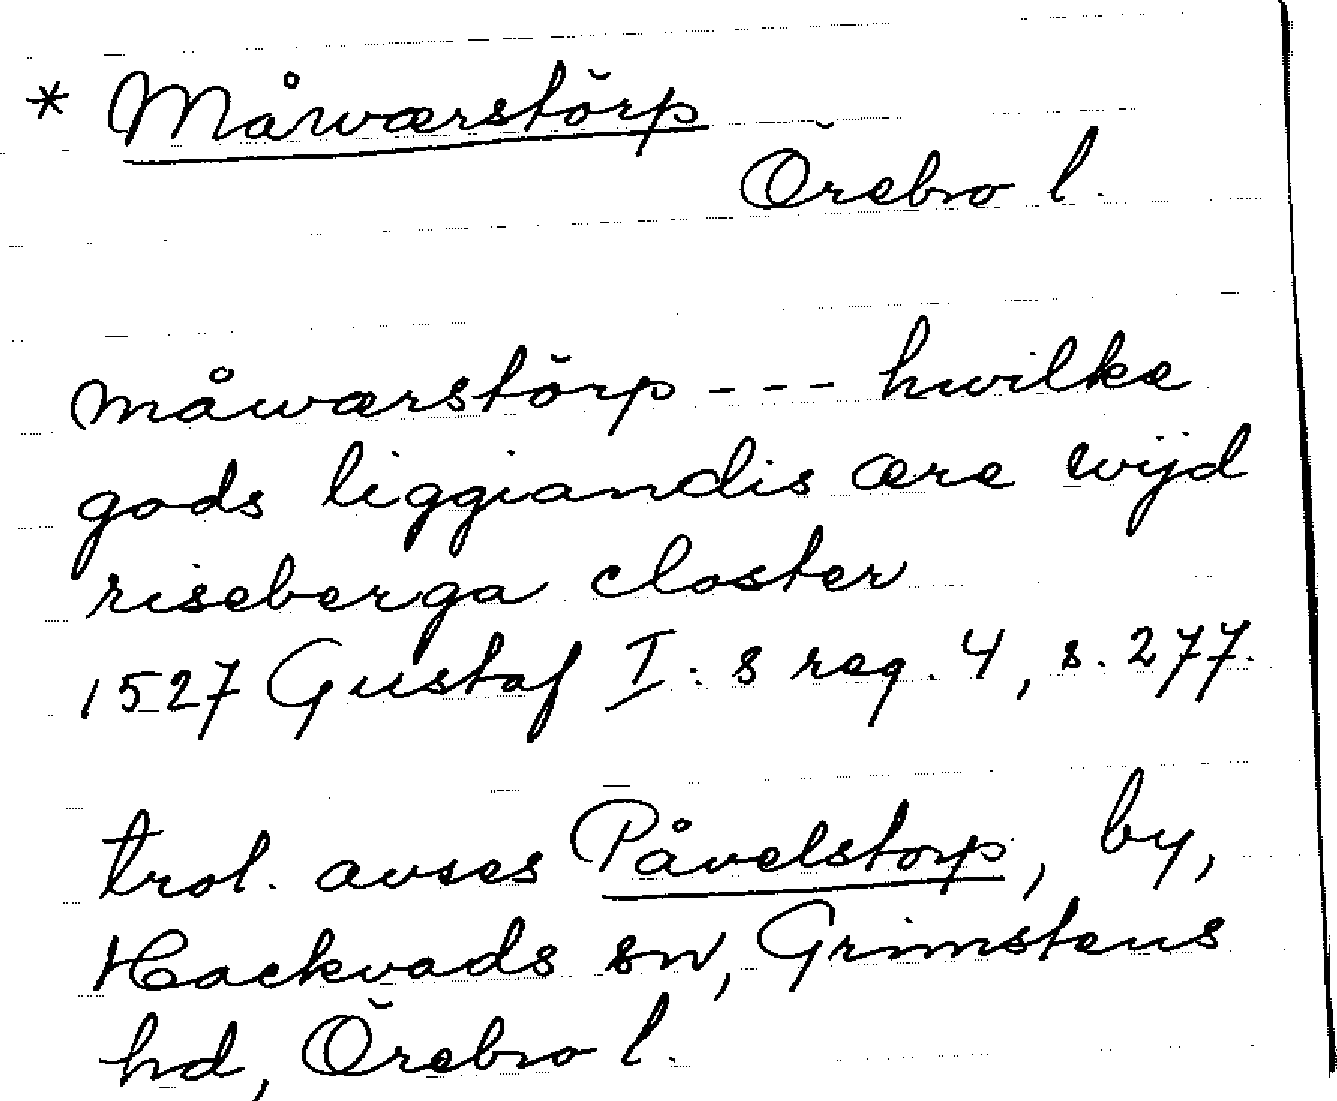 * Måwærstörp
Örebro l.
måwærstörp - - - hwilka
gods liggiandis ære wijd
riseberga closter
1527 Gustaf I:s reg. 4, s. 277.
trol. avses Påvelstorp, by,
Hackvads sn, Grimstens
hd, Örebro l.